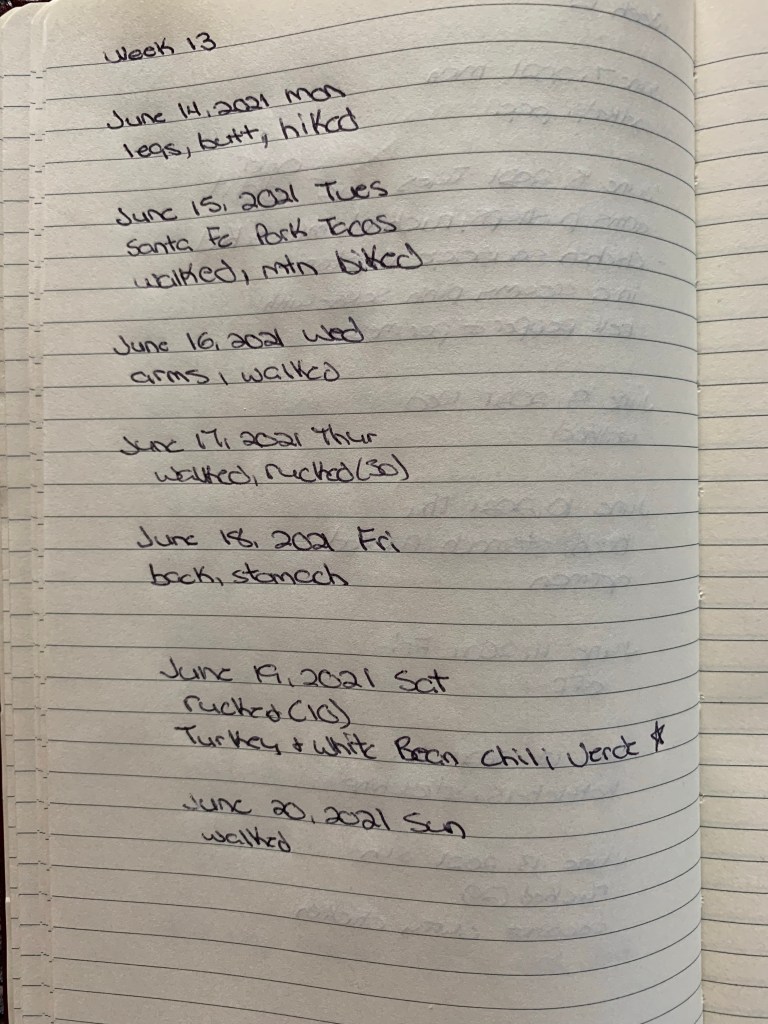 Week 13
June 14, 2021 Mon
legs, butt, hiked
June 15, 2021 Tues
Santa Fe Pork Tacos
walked, mtn biked
June 16, 2021 Wed
arms, walked
June 17, 2021 Thur
walked, rucked (30)
June 18, 2021 Fri
back, stomach
June 19, 2021 Sat
rucked (10)
Turkey & White Bean Chili Verde *
June 20, 2021 Sun
walked